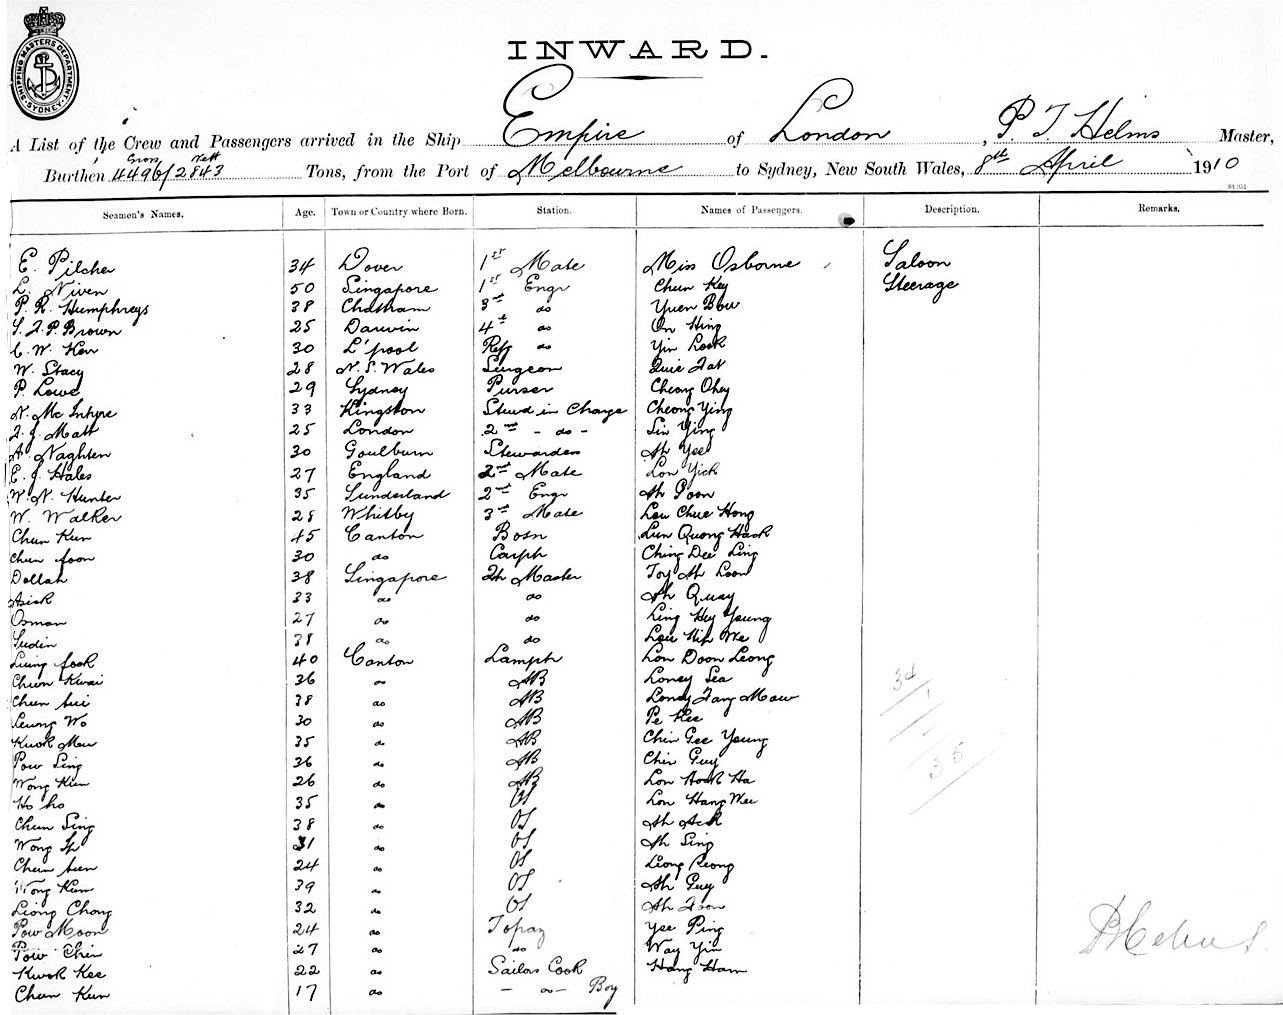 SHIPPING MASTERS DEPARTMENT SYDNEY
INWARD.
A List of the Crew and Passengers arrived in the Ship Empire of London, P. T. Helms Master,
Gross Nett
Burthen 4496/2843 Tons, from the Port of Melbourne to Sydney, New South Wales, 8th April 1910
Seamen's Names. Age. Town or Country where Born. Station. Names of Passengers. Description. Remarks.
E. Pilcher 34 Dover 1st Mate Miss Osborne Saloon
L. Niven 50 Singapore 1st Engr Chun Key Steerage
P. R. Humphreys 38 Chatham 3rd do Yuen Bow
S. J. P. Brown 25 Darwin 4th do On Hing
C. W. Kerr 30 L'pool Refg do Yin Lock
W. Stacy 28 N. S. Wales Surgeon Quie Fat
P. Lowe 29 Sydney Purser Cheong Chey
N. Mc Intyre 33 Kingston Stewd in Charge Cheong Ying
F. J. Matt 25 London 2nd - do - Sin Ying
A. Naghten 30 Goulburn Stewardess Ah Yee
E. J. Hales 27 England 2nd Mate Lon Yick
W. N. Hunter 35 Sunderland 2nd Engr Ah Poon
W. Walker 28 Whitby 3rd Mate Low Chue Hong
Chun Kun 45 Canton Bosn Lun Quong Hack
Chun foon 30 do Carptr Ching Dee Ling
Dollah 38 Singapore Qr Master Toy Ah Loon
Asick 33 do do Ah Quay
Osman 27 do do Ling Hey Young
Sudin 38 do do Low Hip Wa
Leung fook 40 Canton Lamptr Lon Doon Leong
Chun Kwai 36 do AB Loney Sea
Chun Sui 38 do AB Loney Fang Mow 34
Leung Wo 30 do AB Pe Kee 1
Kwok Mew 35 do AB Chin Gee Young
Pow Sing 36 do AB Chin Guy 35
Wong Kun 26 do AB Lon Hock Ha
Ho ho 35 do OS Lon Hang Wee
Chun Sing 38 do OS Ah Ack
Wong Ip 31 do OS Ah Sing
Chun Suen 24 do OS Leong Reong
Wong Kum 39 do OS Ah Guy
Liong Chong 32 do OS Ah Foon
Pow Moon 24 do Topaz Yee Ping
Pow Chin 27 do do Way Yin
Kwok Kee 22 do Sailors Cook Hang Ham
Chun Kun 17 do - do - Boy
P Helms